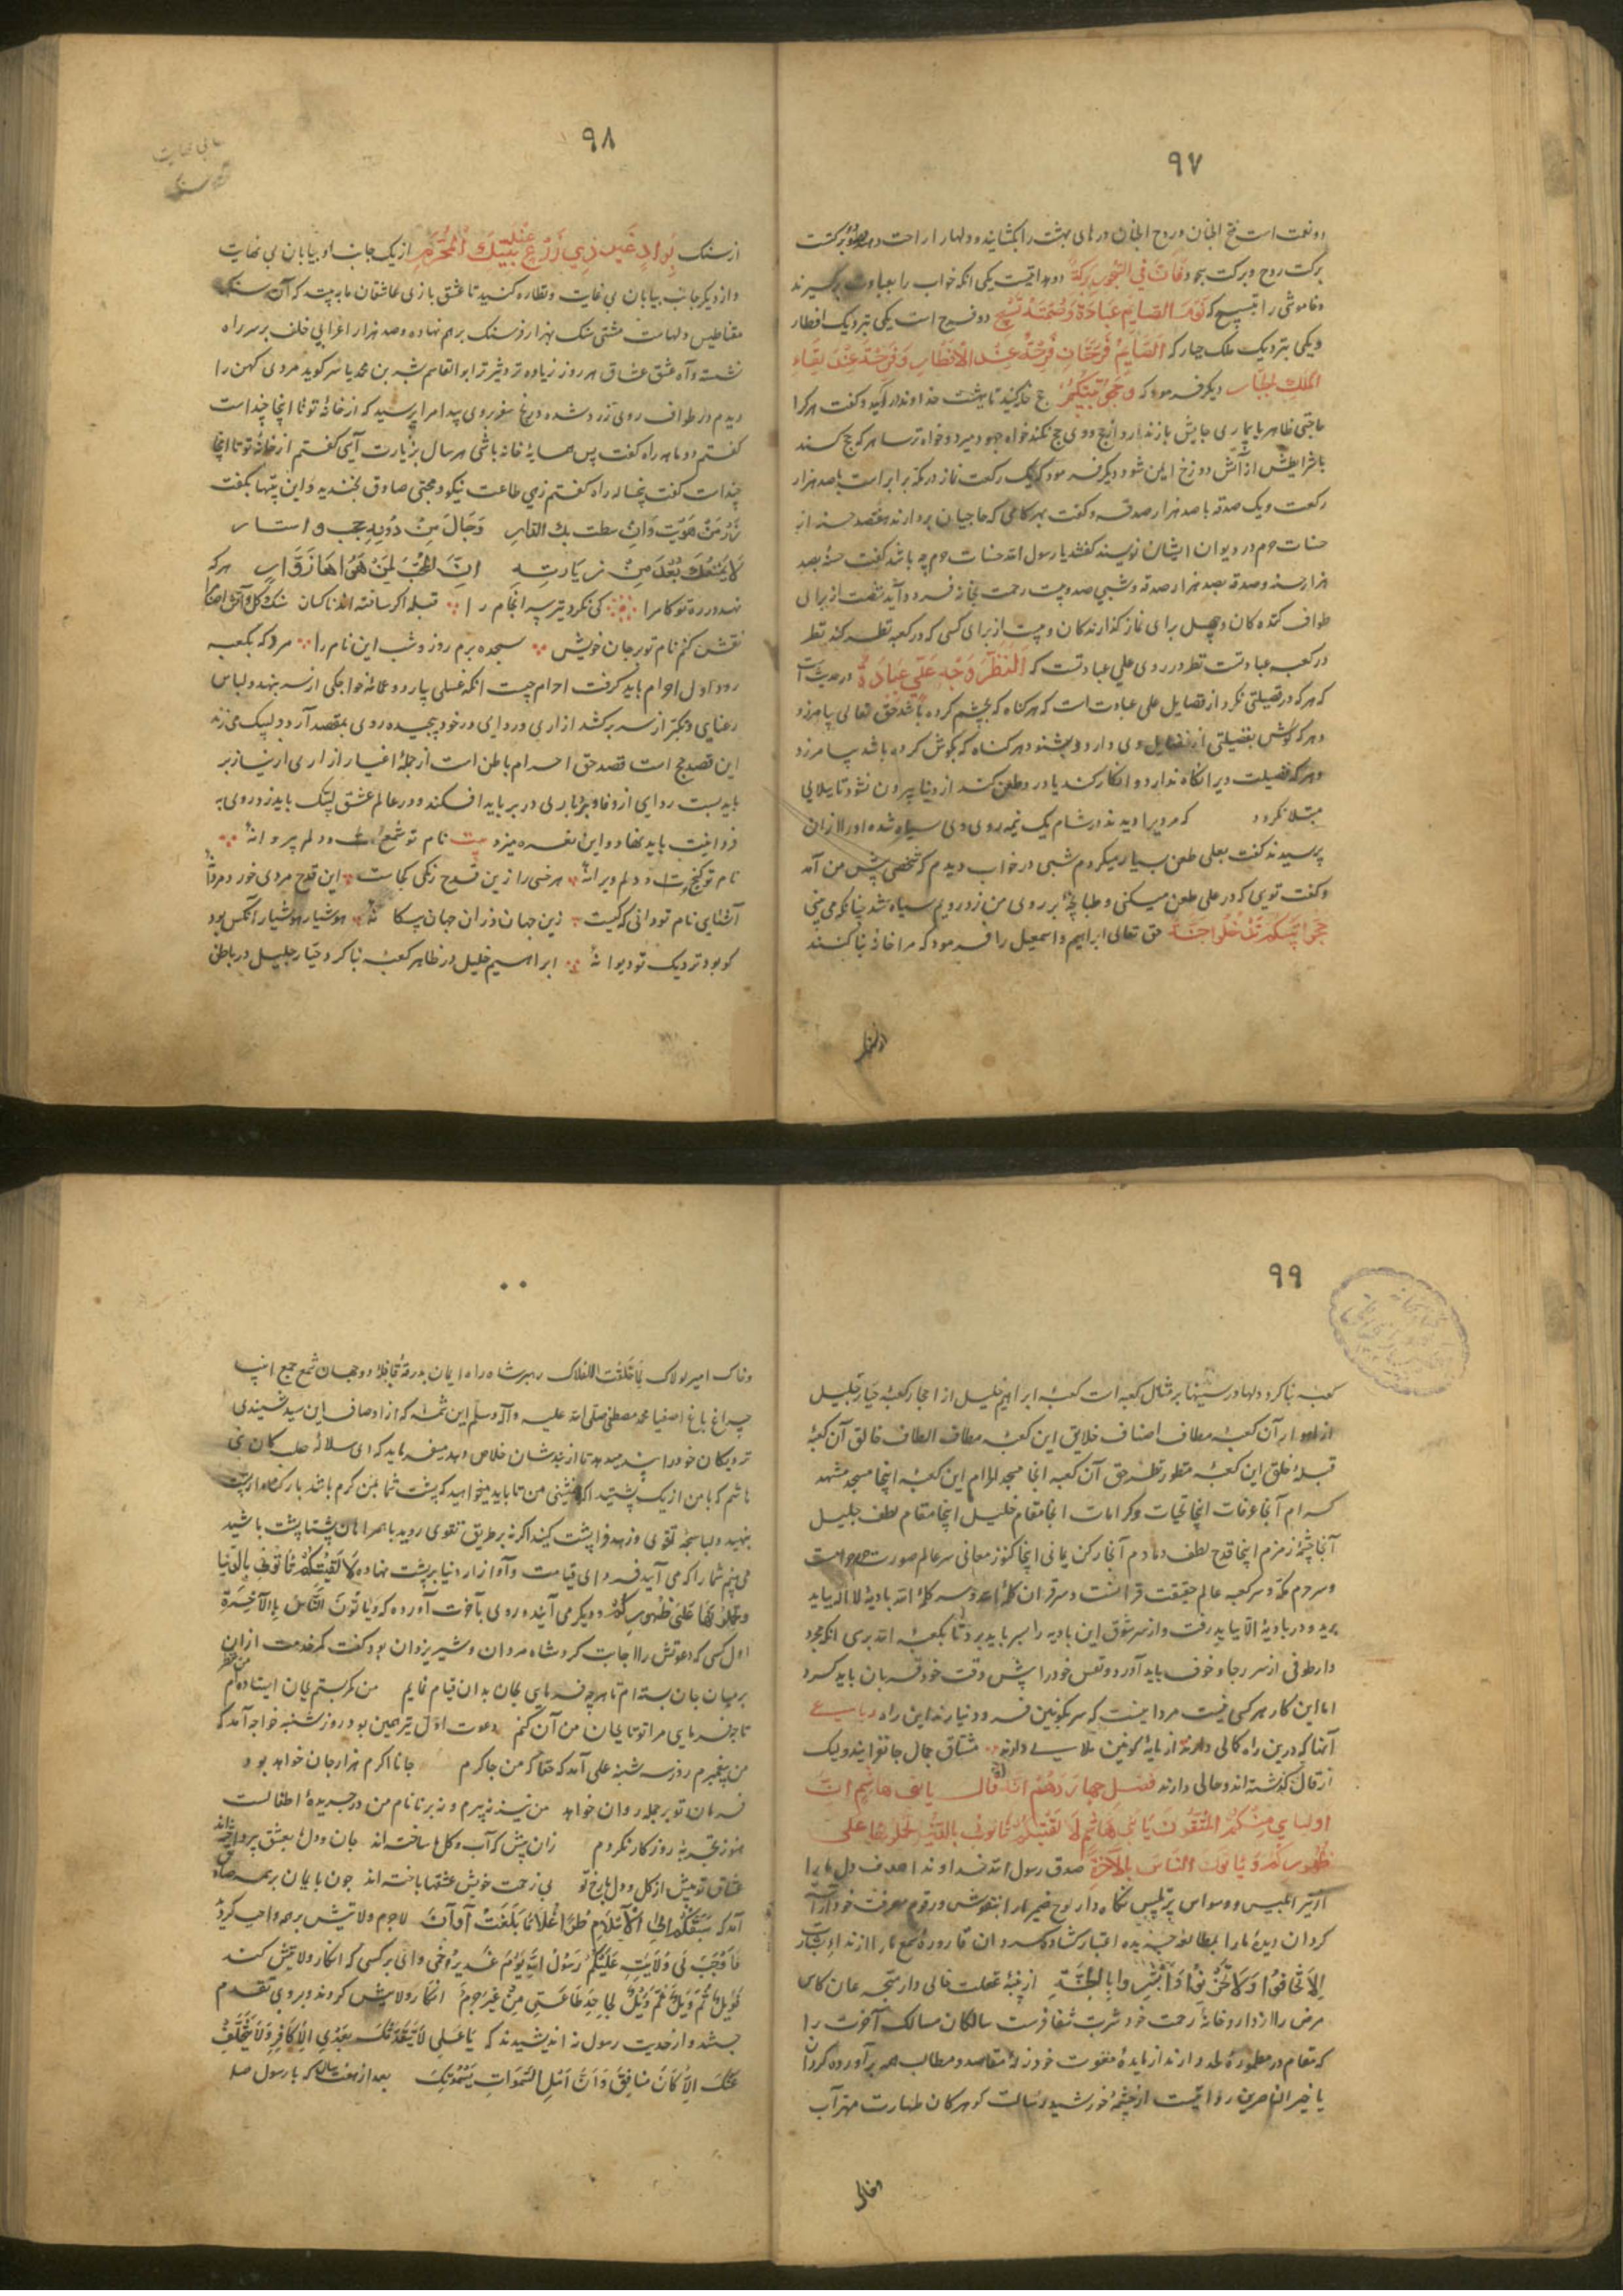 ٩٧
دو نعمت است فتح الجنان و روح الجنان درهای بهشت را بکشایند و دلها را راحت دهد
برکت روح و برکت سحور فَاِنَّ فِي السَّحُورِ بَرَكَةً دو یکی انکه خواب را بعبادت برگیرند
و خاموشی را بتسبیح که نَوْمُ الصَّايِمِ عِبَادَةٌ وَصَمْتُهُ تَسْبِيحٌ دو فرح است یکی بنزدیک افطار
و یکی بنزدیک ملک جبار که لِلصَّايِمِ فَرْحَتَانِ فَرْحَةٌ عِنْدَ الْاِفْطَارِ وَفَرْحَةٌ عِنْدَ لِقَاءِ
الْمَلِكِ الْجَبَّارِ دیکر فرمود که وَحُجُّوا بَيْتَكُمْ حج خانه کنید تا بهشت خداوند در آیید و گفت هر کرا
حاجتی ظاهر یا بیماری جایش باز ندارد از حج و وی حج نکند خواه جهود میرد و خواه ترسا هر که حج کند
با شرایطش از آتش دوزخ ایمن شود دیکر فرمود که یک رکعت نماز در مکه برابر است با صد هزار
رکعت و یک صدقه با صد هزار صدقه و گفت بهر کامی که حاجیان بردارند هفتصد حسنه از
حسنات حرم در دیوان ایشان نویسند گفتند یا رسول الله حسنات حرم چه باشد گفت حسنهٔ بصد
هزار حسنه و صدقه بصد هزار صدقه و شبی صد و بیست رحمت بخانه فرود آید شصت از برای
طواف کننده کان و چهل برای نماز گذارنده کان و بیست از برای کسی که در کعبه نظر کند نظر
در کعبه عبادتست نظر در روی علی عبادتست که اَلنَّظَرُ وَجْهِ عَلِيٍّ عِبَادَةٌ در حدیث است
که هر که در فضیلتی نکرد از فضایل علی عبادت است که هر کناه که بچشم کرده باشد حق تعالی بیامرزد
و هر که کوش بفضیلتی از فضایل وی دارد و بشنود هر کناه که بکوش کرده باشد بیامرزد
و هر که فضیلت ویرا نکاه ندارد و انکار کند یا در و طعن کند از دنیا بیرون نشود تا ببلایی
مبتلا نکردد که مرد یرا دیدند در شام یک نیمه روی وی سیاه شده او را از آن
پرسیدند گفت بعلی طعن بسیار میکردم شبی در خواب دیدم که شخصی پیش من آمد
و گفت تویی که در علی طعن میکنی و طبانچهٔ بر روی من زد رویم سیاه شد چنانکه می بینی
حُجُّوا بَيْتَكُمْ تَدْخُلُوا جَنَّةَ حق تعالی ابراهیم و اسمعیل را فرمود که مرا خانهٔ بنا کنند
از سنک
٩٨
از سنک بِوَادٍ غَيْرِ ذِي زَرْعٍ عِنْدَ بَيْتِكَ الْمُحَرَّمِ از یک جانب او بیابان بی نهایت
و از دیکر جانب بیابان بی غایت و نظاره کنید تا عشق بازی عاشقان ما به بیند که آن سنک
مغناطیس دلهاست مشتی سنک بهزار فرسنک بر هم نهاده و صد هزار اعرابی خلف بر سر راه
نشسته و آه عشق عشاق هر روز زیاده تر و تیزتر ابو القاسم بشر بن محمد یاسر کوید مردی کهن را
دیدم در طواف روی زرد شده و رنج سفر بروی پیدا مرا پرسید که از خانهٔ تو تا اینجا چند است
گفتم دو ماهه راه گفت پس همسایهٔ خانه باشی هر سال بزیارت آیی گفتم از خانهٔ تو تا اینجا
چند است گفت پنجساله راه گفتم زهی طاعت نیکو و محبتی صادق بخندید و این بیتها بگفت
زُرْ مَنْ هَوَيْتَ وَاِنْ شطت بك الدار وَحَالَ مِنْ دُونِهِ حجب و استار
لَا يَمْنَعَنَّكَ بُعْدٌ مِنْ زِيَارَتِهِ اِنَّ الْمُحِبَّ لِمَنْ يَهْوَاهُ زَوَّارُ هر که
نهد در ره تو کام را کی نکرد نیز سر انجام را قبله اکر ساخته اند ناکسان سنک و کل و آتش و اصنام
نقش کنم نام تو بر جان خویش سجده برم روز و شب این نام را مرد که بکعبه
رود اول احرام باید گرفت احرام چیست انکه عسلی پاره و عمامهٔ خواجکی از سر بنهد و لباس
رعنایی و تکبر از سر برکشد ازاری و ردایی در خود پیچیده روی بمقصد آرد و لبیک می زند
این قصد حج است قصد حق احرام باطن است از جملهٔ اغیار ازاری از نیاز بر
باید بست ردایی از وفا و بردباری در بر باید افکند و در عالم عشق لبیک باید زد روی به
فردانیت باید نهاد و این نعره میزد بیت نام تو شمع است و دلم پروانهٔ
نام تو کنج است و دلم ویرانهٔ هر خسی را زین قدح رنکی کجاست این قدح مردی خورد مردانهٔ
آشنایی نام تو دانی که کیست زین جهان و زان جهان بیکانهٔ هوشیار هوشیار آنکس بود
کو بود نزدیک تو دیوانهٔ ابراهیم خلیل در ظاهر کعبهٔ بنا کرد و جبار جلیل در باطن
٩٩
کعبهٔ بنا کرد دلها در سینها بر مثال کعبه است کعبهٔ ابراهیم خلیل از احجار کعبهٔ جبار جلیل
از انوار آن کعبهٔ مطاف اصناف خلایق این کعبهٔ مطاف الطاف خالق آن کعبهٔ
قبلهٔ خلق این کعبهٔ منظور نظر حق آن کعبه انجا مسجد الحرام این کعبه اینجا مسجد مشهد
کرام آنجا عرفات اینجا تحیات و کرامات انجا مقام خلیل اینجا مقام لطف جلیل
آنجا چشمهٔ زمزم اینجا قدح لطف دمادم آنجا رکن یمانی اینجا کنوز معانی سر عالم صورت حرم است
و سر حرم مکه و سر کعبه عالم حقیقت قرآنست و سر قرآن کلمهٔ الله بادیهٔ لا اله بباید
برید و در بادیهٔ الا بباید رفت و از سر شوق این بادیه را بسر باید برد تا بکعبهٔ الله بری انکه مجرد
وار طوفی از سر رجا و خوف باید آورد و نفس خود را پیش وقت خود قربان باید کرد
اما این کار هر کسی نیست مردا نیست که سر بکونین فرود نیارند این راه رباعی
آنها که درین راه کمالی دارند از مایهٔ کونین ملالی دارند مشتاق جمال جانفزایند ولیک
از قال گذشته اند و حالی دارند فصل چهاردهم انه قال يا بنی هاشم ان
اولیایي مِنْكُمُ الْمُتَّقُونَ يَا بَنِي هَاشِمٍ لَا تاتون بالدنيا تحملونها على
ظهوركم وَيَاتُونَ النَّاسَ بِالآخِرَةِ صدق رسول الله خداوندا هدف دل ما را
از تیر ابلیس و وسواس پر تلبیس نکاه دار لوح ضمیر ما را بنقوش و رقوم معرفت خود آراسته
کردان دیدهٔ ما را بمطالعهٔ جریدهٔ اعتبار کشاده کردان قارورهٔ سمع ما را از نداء بشارت
اَلَّا تَخَافُوا وَلَا تَحْزَنُوا وَاَبْشِرُوا بِالْجَنَّةِ از پنبهٔ غفلت خالی دار
مرض را از دار و خانهٔ رحمت خود شربت شفا فرست سالکان مسالک آخرت را
که مقام در مطمورهٔ لحد دارند از مایدهٔ مغفرت خود زلهٔ مقاصد و مطالب همه برآورده کردان
یا خیر الناصرین روایتست از چشمهٔ خورشید رسالت کوهر کان طهارت مهتر آب
و خاک
وخاک امیر لولاک لَمَا خَلَقْتُ الافلاک رهبر شاه راه ایمان بدرقهٔ قافلهٔ دو جهان شمع جمع انبیا
چراغ باغ اصفیا محمد مصطفی صلی الله علیه و آله و سلم این شمه که از اوصاف این سید شنیدی
نزدیکان خود را پند میدهد تا از بندشان خلاص دهد میفرماید که ای سلالهٔ صلب کان بنی
هاشم که با من از یک پشتید
بنهید و لباسچهٔ تقوی و زهد فرا پشت کنید اگر نه بر طریق تقوی روید با همراهان پشتاپشت باشید
می بینم شما را که می آیید فردای قیامت و آواز از دنیا بر پشت نهاده تَاتُونِي بِالدُّنْيَا
وَتَحْمِلُونَهَا عَلَى ظُهُورِكُمْ و دیکر می آیند و روی بآخرت آورده که وَيَاتُونَ النَّاسُ بِالْآخِرَةِ
اول کسی که دعوتش را اجابت کرد شاه مردان و شیر یزدان بود گفت کمر خدمت از آن
بر میان جان بسته ام تا هر چه فرمایی بجان بدان قیام نمایم من کمر بستم بجان ایستاده ام
تا چه فرمایی مرا تو تا بجان من آن کنم دعوت اول بود روز شنبه خواجه آمد که
من پیغمبرم روز سه شنبه علی آمد که حقا که من چاکرم جانا اکرم هزار جان خواهد بود
فرمان تو بر جمله روان خواهد من نیز نه پیرم و نه برنا نام من در جریدهٔ اطفالست
هنوز تجربهٔ روزکار نکردم زان پیش که آب و کل ما ساخته اند جان و دل ما بعشق پرداخته اند
عشاق تو پیش از کل و دل با رخ تو بی زحمت خویش عشقها باخته اند چون بایمان بر همه
آمد که سَبَقْتُكُمُ اِلَى الْاِسْلَامِ طُرًّا غُلَامًا بَلَغْتُ اَوَانَ لاجرم ولایتش بر همه واجب کردید
فَاَوْجَبَ لِي وَلَايَتَهُ عَلَيْكُمْ رَسُولُ اللهِ يَوْمَ غَدِيرِ خُمٍّ وای بر کسی که انکار ولایتش کند
فَوَيْلٌ ثُمَّ وَيْلٌ ثُمَّ وَيْلٌ لِجَاحِدِ طَاعَتِي مِنْ غَيْرِ جُرْمٍ انکار ولایتش کردند و بر وی تقدم
جستند و از حدیث رسول نه اندیشیدند که يَا عَلِي لَا يَتَقَدَّمُكَ بَعْدِي اِلَّا كَافِرٌ وَلَا يَتَخَلَّفُ
عَنْكَ اِلَّا كَانَ مُنَافِقٌ وَاَنَّ اَهْلَ السَّمَوَاتِ بعد از هفت سال که با رسول صلی